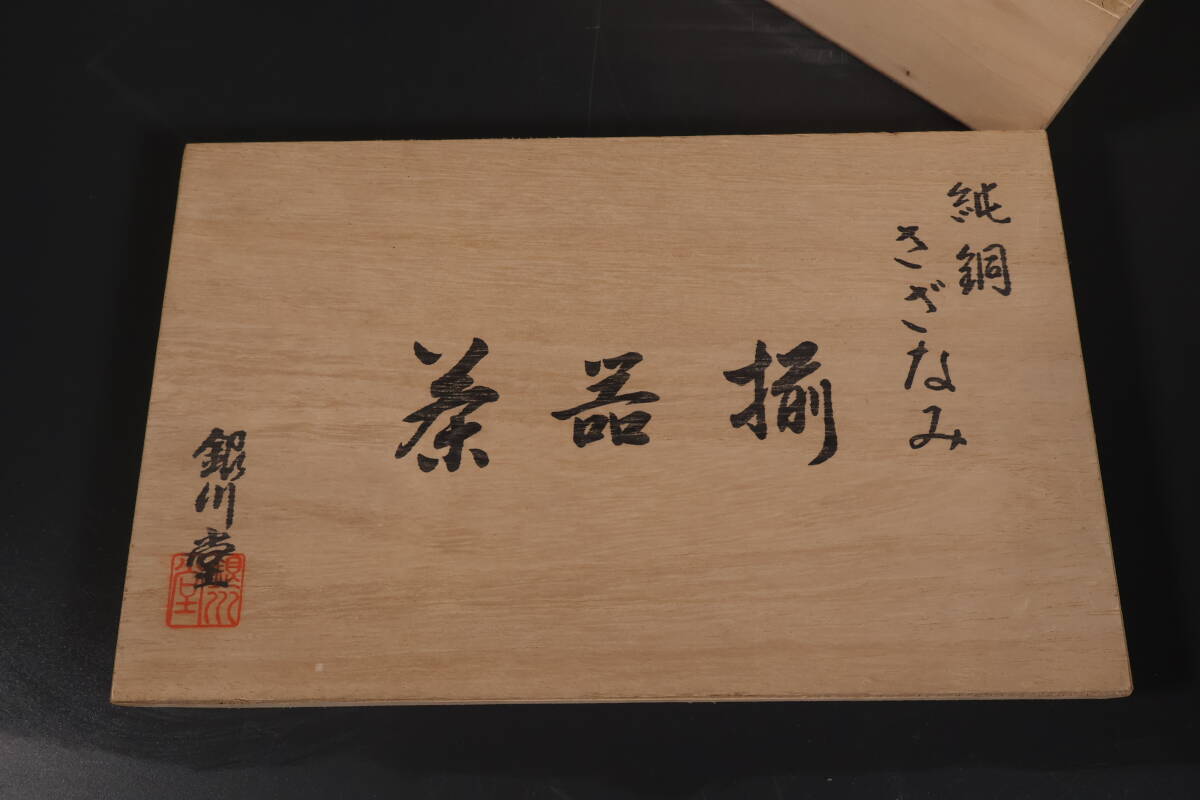 純銅
さざなみ
茶器揃
銀川堂
銀川堂